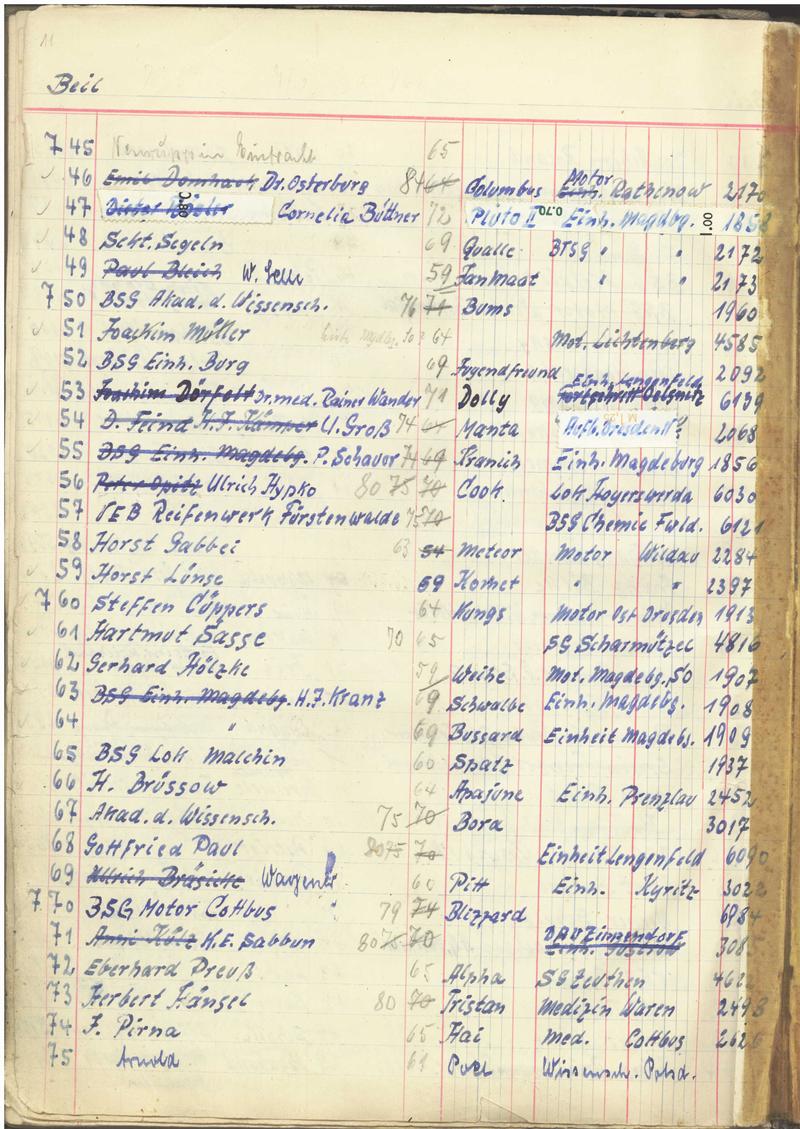 11
Beil
7 45 Neuruppin Eintracht 65
46 Emil Domhack Dr. Osterburg 84 64 Columbus Motor Einh. Rathenow 2170
47 Dieter Cornelia Büttner 72 Pluto II 0.70 Einh. Magdbg. 1.00 1858
48 Sekt. Segeln 69 Qualle BTSG " " 2172
49 Paul Bleich W. 59 Jan Maat " " 2173
7 50 BSG Akad. d. Wissensch. 76 71 Bums 1960
51 Joachim Müller 64 Mot. Lichtenberg 4585
52 BSG Einh. Burg 69 Jugendfreund Einh. Lengenfeld 2092
53 Joachim Dörfelt Dr. med. Rainer Wander 71 Dolly Fortschritt Oelsnitz 6139
54 D. Feind H.J. Kämper U. Groß 74 Manta "Aufb. Dresden"? 2068
55 BSG Einh. Magdebg. P. Schauer 74 69 Kranich Einh. Magdeburg 1856
56 Peter Opitz Ulrich Hypko 80 75 70 Cook Lok Hoyerswerda 6030
57 VEB Reifenwerk Fürstenwalde 75 70 BSG Chemie Fwld. 6121
58 Horst Gabbei 63 54 Meteor Motor Wildau 2284
59 Horst Lünse 69 Komet " " 2397
7 60 Steffen Cüppers 64 Kungs Motor Ost Dresden 1913
61 Hartmut Sasse 70 65 SG Scharmützel 4816
62 Gerhard Hölzke 59 Weihe Mot. Magdebg. SO 1907
63 BSG Einh. Magdebg. H.J. Kranz 69 Schwalbe Einh. Magdebg. 1908
64 " 69 Bussard Einheit Magdebg. 1909
65 BSG Lok Malchin 60 Spatz 1937
66 H. Brüssow 64 Apajune Einh. Prenzlau 2452
67 Akad. d. Wissensch. 75 70 Bora 3017
68 Gottfried Paul 80 75 70 Einheit Lengenfeld 6090
69 Ullrich Bräsicke 60 Pitt Einh. Kyritz 3022
7 70 BSG Motor Cottbus " 79 74 Blizzard 6984
71 Anni Kütz K.E. Sabbun 80 75 70 Einh. 3085
72 Eberhard Preuß 65 Alpha SG Zeuthen 4622
73 Herbert Hänsel 80 70 Tristan Medizin Waren 2498
74 F. Pirna 65 Hai med. Cottbus 2626
75 Arnold 61 Poel Wissensch. Potsd.